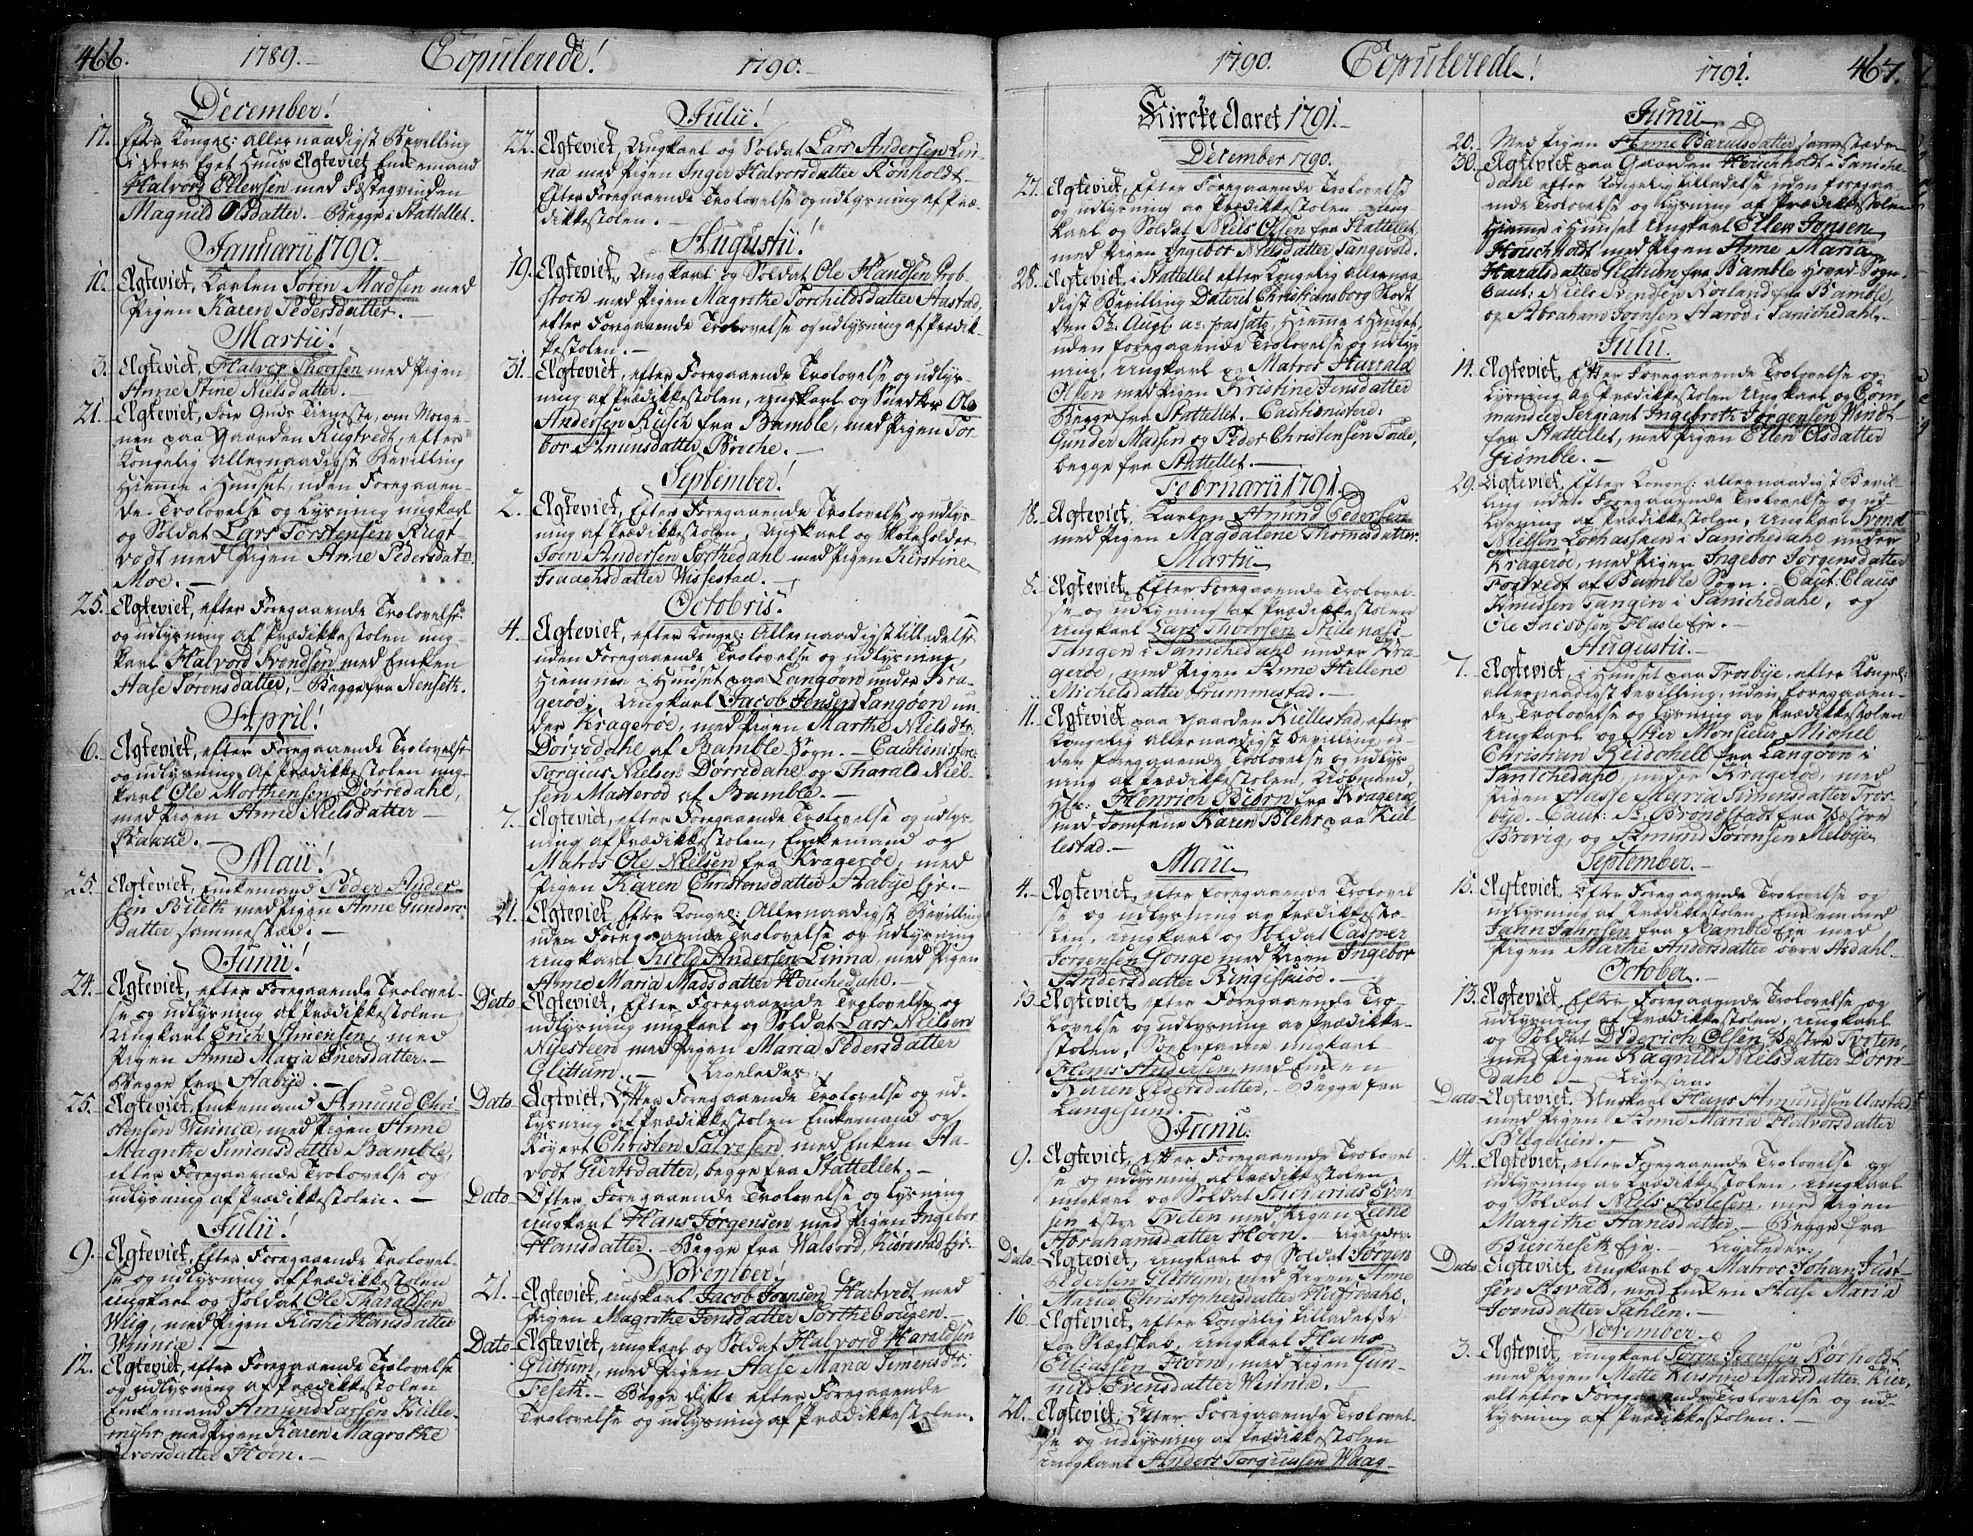 466.
1789.
Copulerede!
1790.
December!
17. Efter Kongel: allernaadigst Bevilling
i deres Eget Huus Ægteviet Enkemand
Halvor Ellensen med Fæstequinden
Magnild Olsdatter. Begge i Stattellet.
Januarii 1790.
10. Ægteviet, Karlen Søren Madsen med
Pigen Karen Pedersdatter.
Martii!
3. Ægteviet, Halvor Thorsen med Pigen
Anne Stine Nielsdatter.
21. Ægteviet, Før Guds Tieneste, om Morge-
nen paa Gaarden Rugtvedt, efter
Kongelig Allernaadigst Bevilling
Hiemme i Huuset, uden Foregaaen-
de Trolovelse og Lysning ungkarl
og Soldat Lars Torstensen Rugt-
vedt med Pigen Anne Pedersdatr
Moe.
25. Ægteviet, efter Foregaaende Trolovelse
og udlysning af Prædikkestolen ung-
karl Halvord Svendsen med Encken
Aase Sørensdatter, Begge fra Nenseth.
April!
6. Ægteviet, efter Foregaaende Trolovelse
og udlysning Af Prædikkestolen ung-
karl Ole Morthensen Dørredahl,
med Pigen Anne Nielsdatter
Bakke.
Maii!
25. Ægteviet, Enkemand Peder Ander-
sen Bileth med Pigen Anne Gunders-
datter sammestæd.
Junii!
24. Ægteviet, efter Foregaaende Trolovel-
se og udlysning af Prædikkestolen
Ungkarl Erich Simensen, med
Pigen Anne Maria Enersdatter.
Begge fra Aabye.
25. Ægteviet, Enkemand Amund Chri-
stensen Vinnie, med Pigen Anne
Magrethe Simensdatter Bamble,
efter Foregaaende Trolovelse og
udlysning af Prædikkestolen.
Julii!
9. Ægteviet, Efter Foregaaende Trolovel-
se og udlysning af Prædikkestolen
ungkarl og Soldat Ole Tharaldsen
med Pigen Kirstie Hansdatter
Vinnie!
12. Ægteviet, efter Foregaaende Trolovelse
og udlysning af Prædikkestolen
Enkemand Amund Larsen Kielle-
myhr med Pigen Karen Magrethe
Halvorsdatter Hoen.
Julii!
22. Ægteviet, Ungkarl og Soldat Lars Andersen Lin-
na med Pigen Inger Halvorsdatter Rønholdt
Efter Foregaaende Trolovelse og udlysning af Præ-
dikkestolen.
Augustii!
19. Ægteviet, Ungkarl og Soldat Ole Handsen Grob-
stock med Pigen Magrethe Torchildsdatter Aastad,
efter Foregaaende Trolovelse og udlysning af Prædik-
kestolen.
31. Ægteviet, efter Foregaaende Trolovelse og udlys-
ning af Prædikkestolen, ungkarl og Snedker Ole
Andersen Rusch fra Bamble, med Pigen Tor-
bor Amunsdatter Breche.
September!
2. Ægteviet, Efter Foregaaende Trolovelse og udlys-
ning af Prædikkestolen, Ungkarl og Skoleholder
Joen Andersen Torthedahl med Pigen Kirstine
Traaghsdatter Wissestad.
Octobris!
4. Ægteviet, efter Kongel: Allernaadigst tilladelse
uden Foregaaende Trolovelse og udlysning,
Hiemme i Huuset paa Langøen under Kra-
gerøe, Ungkarl Jacob Jensen Langøen un-
der Kragerøe, med Pigen Marthe Nielsdtr
Dørredahl af Bamble Sogn. Cautionister
Torgius Nielsen Dørredahl og Tharald Niel-
sen Masterød af Bamble.
7. Ægteviet, efter Foregaaende Trolovelse og udlys-
ning af Prædikkestolen, Enkemand og
Matros Ole Nielsen fra Kragerøe, med
Pigen Karen Christensdatter Aabye Eje.
21. Ægteviet, Efter Kongel: Allernaadigst Bevilling
uden Foregaaende Trolovelse og udlysning
ungkarl Kield Andersen Linna, med Pigen
Anne Maria Madsdatter Houchedahl.
Dato Ægteviet, Efter Foregaaende Trolovelse og
udlysning ungkarl og Soldat Lars Nielsen
Nijesteen med Pigen Maria Pedersdatter
Glittum. Ligeledes:
Dato Ægteviet, Efter Foregaaende Trolovelse og ud-
lysning af Prædikkestolen Enkemand og
Røyert Christen Salvesen med Enken Aa-
vodt Giertsdatter, begge fra Stattellet.
Dato Efter Foregaaende Trolovelse og Lysning
ungkarl Hans Jørgensen med Pigen Ingebor
Hansdatter. Begge fra Walsrød, Kiørestad Eje.
November!
21. Ægteviet, ungkarl Jacob Joensen Hartvedt med
Pigen Magrethe Jensdatter Torthebougen.
Dato Ægteviet, ungkarl og Soldat Halvord Haraldsen
Glittum, med Pigen Aase Maria Simensdtr
Teseth. Begge disse efter Foregaaende
Trolovelse og udlysning af Prædikkestolen.
1790.
Copulerede!
1791.
467.
Kircke Aaret 1791.
December 1790.
27. Ægteviet, Efter Foregaaende Trolovelse
og udlysning av Prædikkestolen ung
karl og Soldat Niels Olsen fra Stattellet
med Pigen Ingebor Nielsdatter Tangevald.
28. Ægteviet, i Stattellet efter Kongelig allernaa-
digst Bevilling Dateret Christiansborg Slodt
den 5te Augt. a: passato, Hiemme i Huuset,
uden foregaaende Trolovelse og udlys-
ning, ungkarl og Matros Harrald
Olsen med Pigen Kristine Jensdatter
Begge fra Stattellet. Cautionisterne:
Gunder Madsen og Peder Christensen Taale,
begge fra Stattellet.
Februarii 1791.
18. Ægteviet, Karlen Amund Pedersen
med Pigen Magdalene Thomesdatter.
Martii
8. Ægteviet, Efter Foregaaende Trolovel-
se og udlysning af Prædikkestolen
ungkarl Lars Thorsen Stillenæss-
Tangen i Sanichedahl under Kra-
gerøe, med Pigen Anne Hellene
Michelsdatter Trummestad.
11. Ægteviet paa Gaarden Kiellestad, efter
Kongelig allernaadigst Bevilling, u-
den Foregaaende Trolovelse og udlys-
ning af Prædikkestolen, Kiøbmand
Hr: Henrich Biørn fra Kragerøe
med Jomfrue Karen Blehr paa Kiel-
lestad.
Maii
4. Ægteviet, efter Foregaaende Trolovel-
se og udlysning av Prædikkesto-
len, ungkarl og Soldat Casper
Jørgensen Gonge med Pigen Ingebor
Andersdatter Ringissiøe.
13. Ægteviet, efter Foregaaende Tro-
lovelse og udlysning av Prædikke-
stolen, Søefarne ungkarl
Hans Andersen med Enken
Karen Pedersdatter, Begge fra
Langesund.
Junii
9. Ægteviet, Efter Foregaaende Trolovel-
se og udlysning af Prædikkestolen
ungkarl og Soldat Zacharias Even-
sen østre Tveten med Pigen Lene
Abrahamsdatter Hoen. Ligeledes:
Dato Ægteviet, ungkarl og Soldat Jørgen
Pedersen Glittum, med Pigen Anne
Maria Christophersdatter Hegredahl.
16. Ægteviet, efter Kongelig Tilladelse
for Slægtskab, ungkarl Hans
Eliassen Hoen, med Pigen Gun-
nild Evensdatter Vinnie.
20. Ægteviet, Efter Foregaaende Trolovel-
se og udlysning af Prædikkestolen
ungkarl Anders Torgiussen Waag
Junii
20. Med Pigen Anne Baralsdatter sammestæds
30. Ægteviet paa Gaarden Houscholdt i Saniche-
dahl efter Kongelig tilladelse uden foregaa-
ende Trolovelse og Lysning af Prædikkestolen
Hiemme i Huuset Ungkarl Ellen Jensen
Houscholdt med Pigen Anne Maria
Haraldsdatter Glittum fra Bamble Hoved-Sogn.
Caut: Niels Svendsen Rørland fra Bamble,
og Abraham Joensen Aarøe i Sanichedahl.
Julii
14. Ægteviet, Efter Foregaaende Trolovelse og
Lysning af Prædikkestolen Ungkarl og Com-
mandeer Sergiant Ingebreth Jørgensen Windt
fra Stattellet, med Pigen Ellen Olsdatter
Giømble.
29. Ægteviet, Efter Kongel: allernaadigst Bevil-
ling uden Foregaaende Trolovelse og ud-
lysning af Prædikkestolen, ungkarl Svend
Nielsen Lofhassken i Sanichedahl under
Kragerøe, med Pigen Ingebor Jørgensdatter
Fostvedt af Bamble Sogn. Caut: Claus
Knudsen Tangen i Sanichedahl, og
Ole Jacobsen Hasle Eje.
Augustii
7. Ægteviet, i Huuset paa Trosbye, efter Kongel:
allernaadigst bevilling, uden foregaaen-
de Trolovelse og Lysning av Prædikkestolen
ungkarl og Skier Monsieur Michel
Christian Reidchell fra Langøen i
Sanichedahl under Kragerøe, med
Pigen Aasse Maria Simensdatter Tros-
bye. Caut: S. Brondstadt fra Væstre
Brevig, og Amund Sørensen Melbye
September.
15. Ægteviet, Efter Foregaaende Trolovelse og
udlysning af Prædikkestolen Enkemand
Jahn Jahnsen fra Bamble Eje med
Pigen Marthe Andersdatter øvre Asdahl.
October.
13. Ægteviet, Efter Foregaaende Trolovelse og
udlysning af Prædikkestolen, ungkarl
og Soldat Diderich Olsen Væstre Tveten,
med Pigen Ragnild Nielsdatter Dørre-
dahl. Ligesaa
Dato Ægteviet, Ungkarl Hans Amundsen Aastad
med Pigen Anne Maria Halvorsdatter
Blegelien.
14. Ægteviet, efter Foregaaende Trolovelse og
udlysning af Prædikkestolen, ungkarl
og Soldat Niels Aslesen, med Pigen
Margethe Hansdatter. Begge fra
Bierckeseth Eje. Ligeledes:
Dato Ægteviet, ungkarl og Matros Johan Just-
sen Asvald, med Enken Aase Maria
Svensdatter Sahlen.
November.
3. Ægteviet, ungkarl Sørn Svensen Rørholdt
med Pigen Mette Kirstine Madsdatter Kier,
alt efter Foregaaende Trolovelse og ud-
lysning af Prædikkestolen.